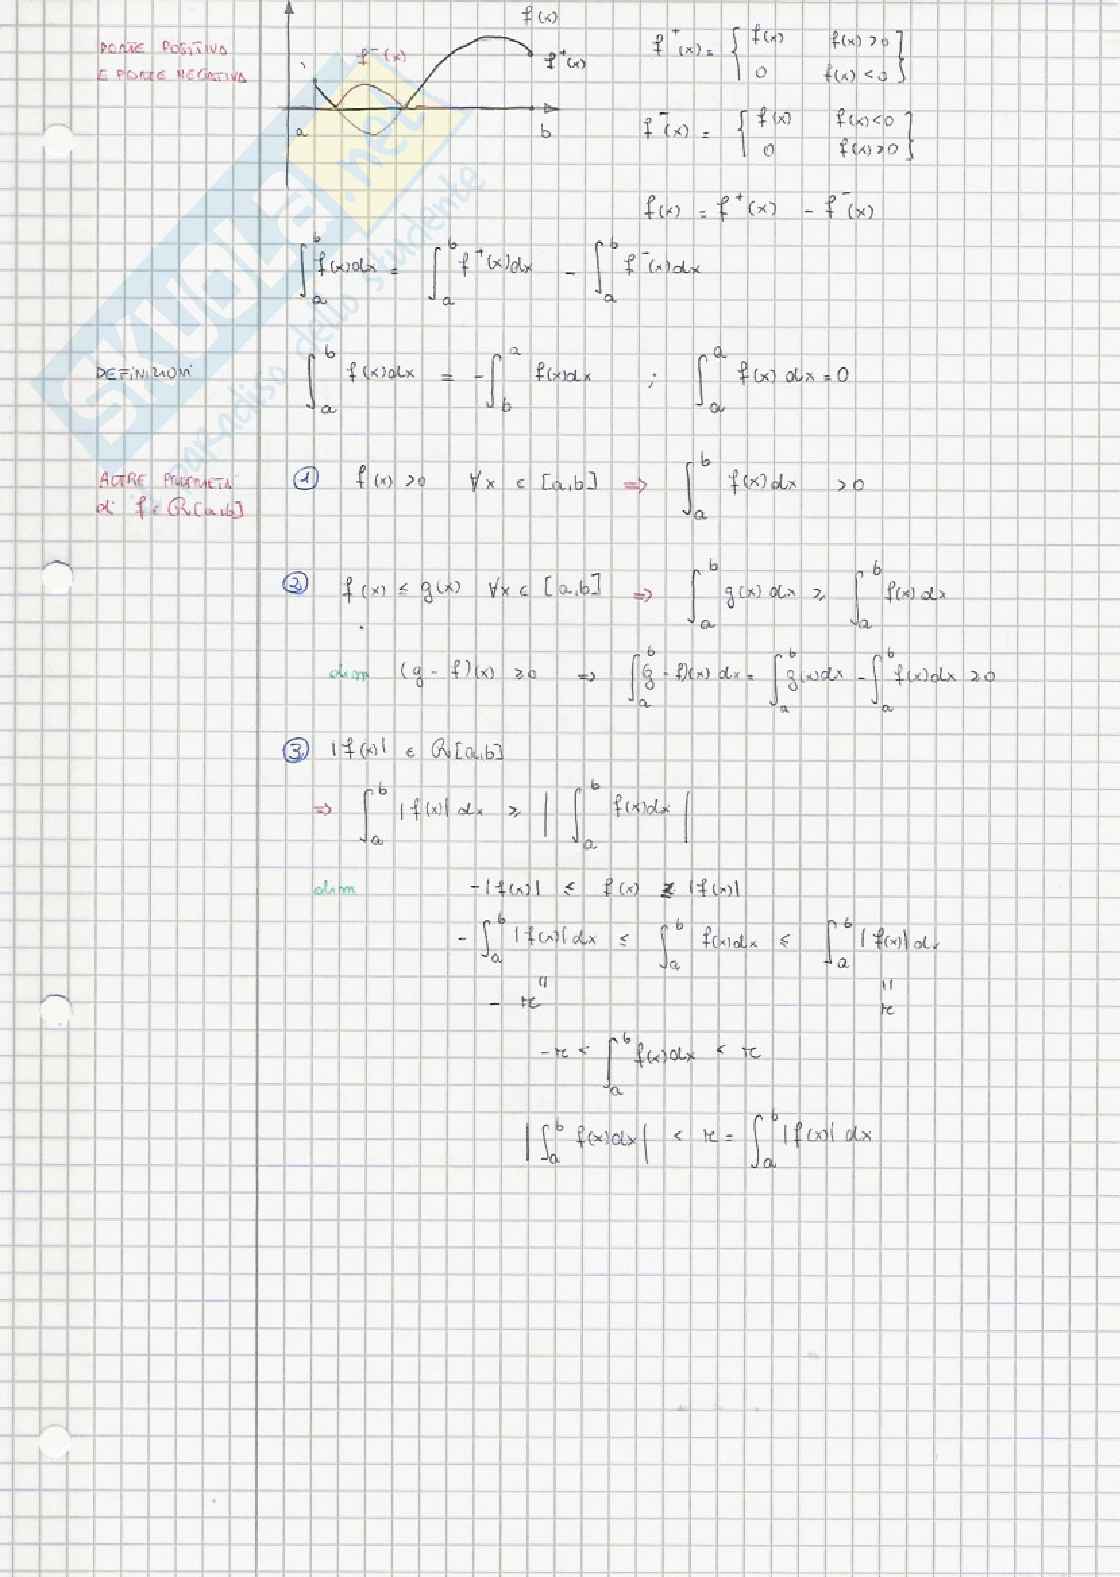 PARTE POSITIVA
E PARTE NEGATIVA
f(x)
f⁻(x)
f⁺(x)
a
b
f⁺(x) = { f(x) f(x) > 0
0 f(x) < 0 }
f⁻(x) = { f(x) f(x) < 0
0 f(x) > 0 }
f(x) = f⁺(x) - f⁻(x)
∫_a^b f(x)dx = ∫_a^b f⁺(x)dx - ∫_a^b f⁻(x)dx
DEFINIZIONI
∫_a^b f(x)dx = -∫_b^a f(x)dx ; ∫_a^a f(x) dx = 0
ALTRE PROPRIETÀ
di f ∈ R[a,b]
① f(x) > 0 ∀x ∈ [a,b] ⇒ ∫_a^b f(x)dx > 0
② f(x) ≤ g(x) ∀x ∈ [a,b] ⇒ ∫_a^b g(x) dx ≥ ∫_a^b f(x) dx
dim (g - f)(x) ≥ 0 ⇒ ∫_a^b (g - f)(x) dx = ∫_a^b g(x)dx - ∫_a^b f(x)dx ≥ 0
③ |f(x)| ∈ R[a,b]
⇒ ∫_a^b |f(x)| dx ≥ | ∫_a^b f(x)dx |
dim -|f(x)| ≤ f(x) ≤ |f(x)|
-∫_a^b |f(x)|dx ≤ ∫_a^b f(x)dx ≤ ∫_a^b |f(x)|dx
" "
- r r
-r < ∫_a^b f(x)dx < r
|∫_a^b f(x)dx| < r = ∫_a^b |f(x)| dx
SKUOLA.net
paradiso dello skudente